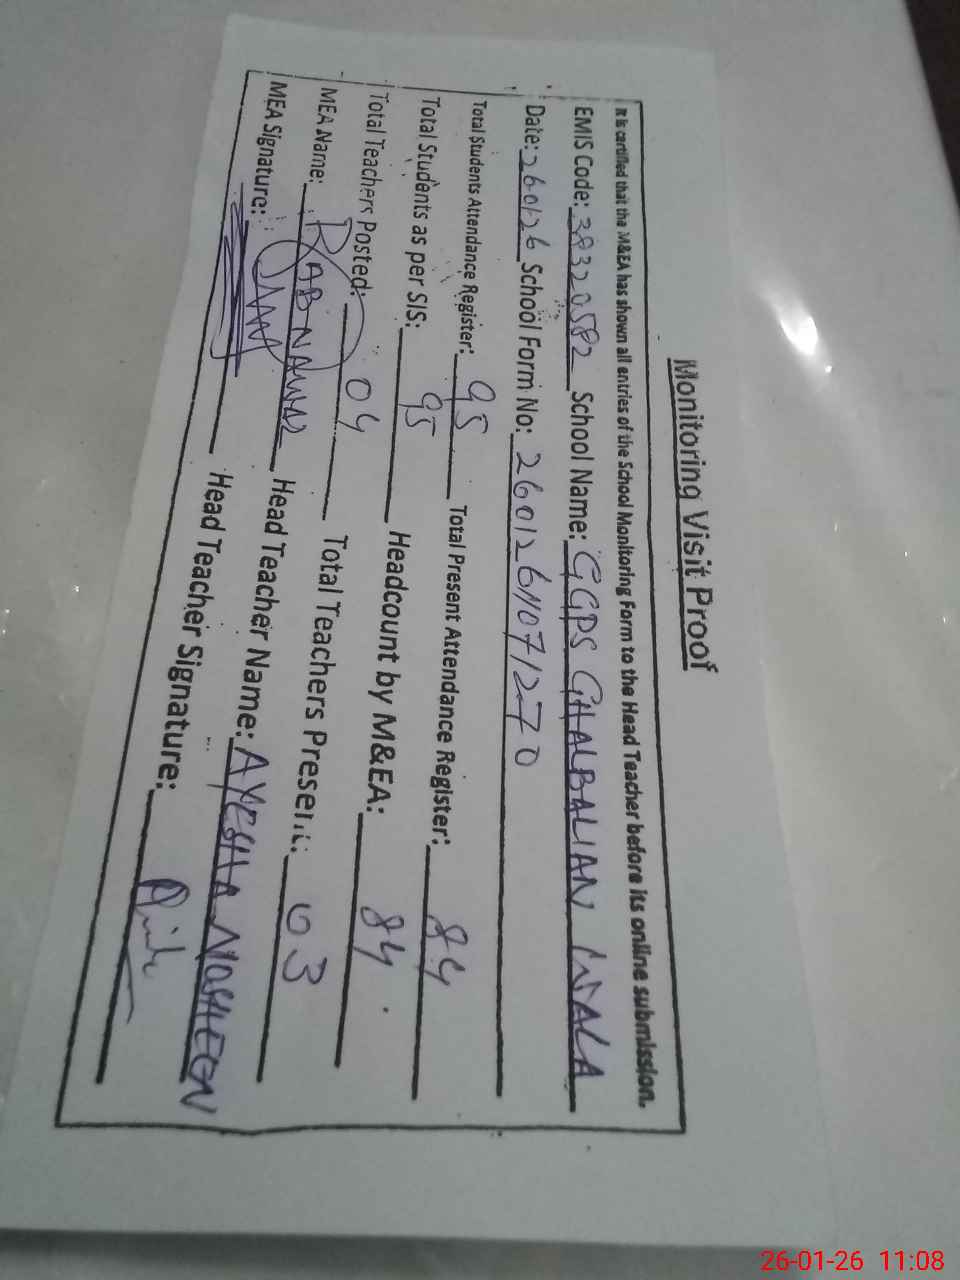 Monitoring Visit Proof
It is certified that the M&EA has shown all entries of the School Monitoring Form to the Head Teacher before its online submission.
EMIS Code: 38320582 School Name: GGPS GHALBALIAN WALA
Date: 260126 School Form No: 26012611071270
Total Students Attendance Register: 95 Total Present Attendance Register: 84
Total Students as per SIS: 95 Headcount by M&EA: 84
Total Teachers Posted: 04 Total Teachers Present: 03
MEA Name: RAB NAWAZ Head Teacher Name: AYESHA NOSHEEN
MEA Signature: Head Teacher Signature:
26-01-26 11:08